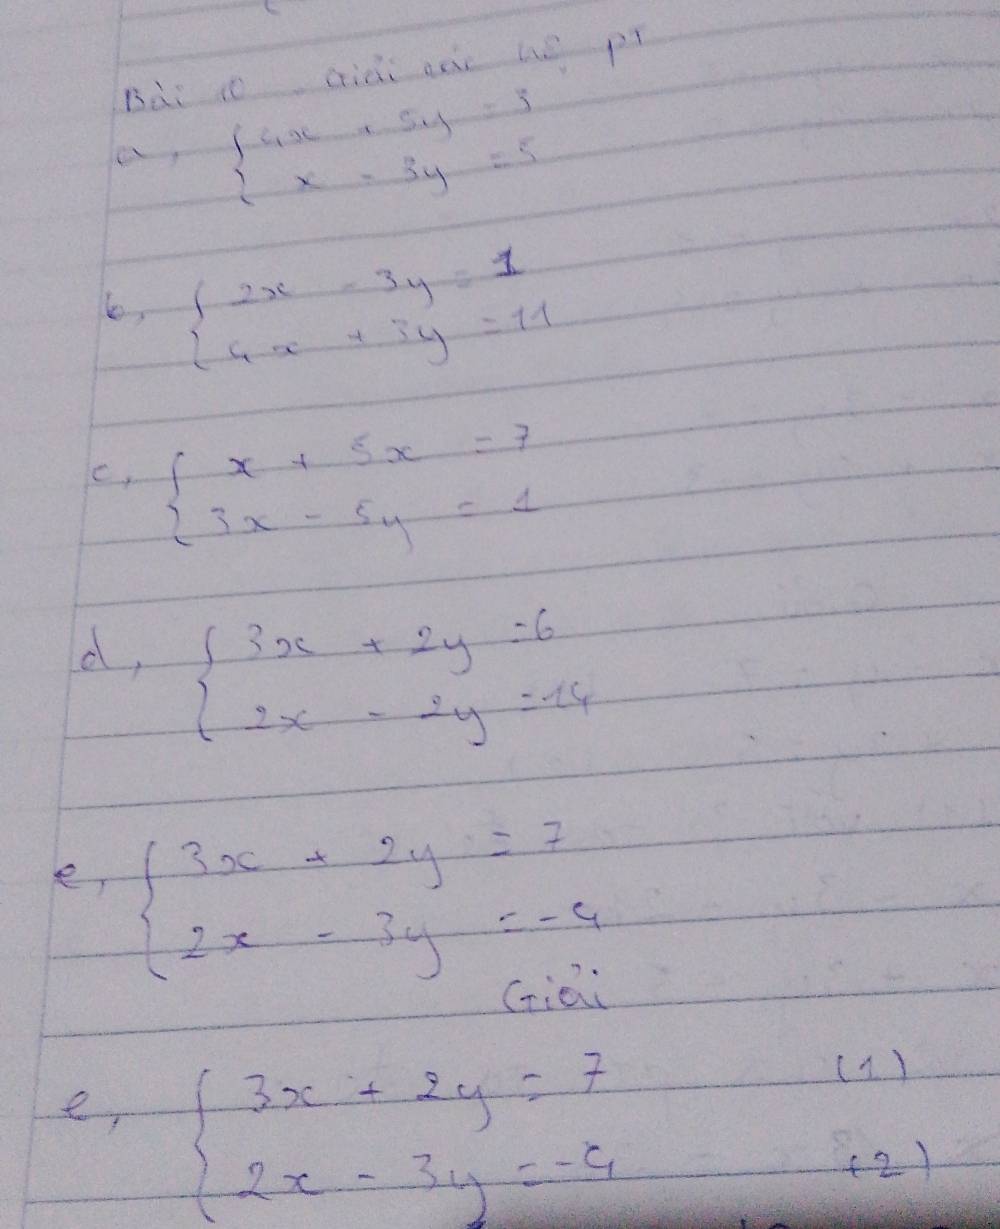 Bài 10 Giải các hệ pT
a, { 4x + 5y = 3
{ x - 3y = 5
b, { 2x - 3y = 1
{ 4x + 3y = 11
c, { x + 5x = 7
{ 3x - 5y = 1
d, { 3x + 2y = 6
{ 2x - 2y = 14
e, { 3x + 2y = 7
{ 2x - 3y = -4
Giải
e, { 3x + 2y = 7 (1)
{ 2x - 3y = -4 (2)